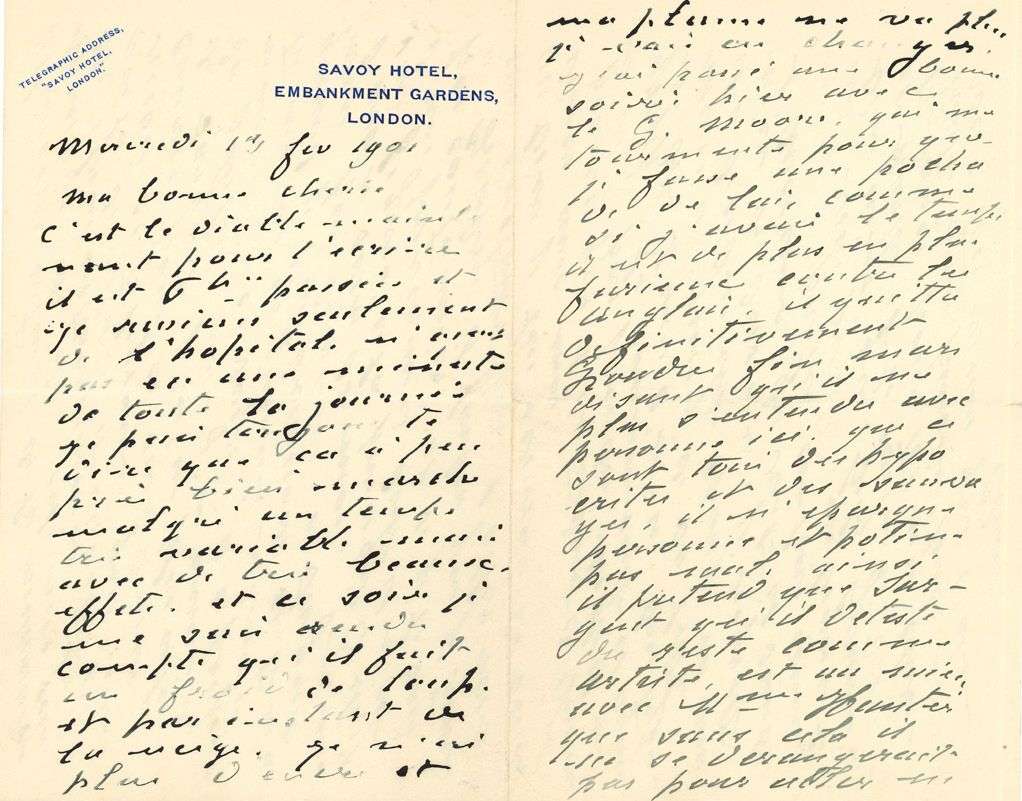 TELEGRAPHIC ADDRESS,
"SAVOY HOTEL,
LONDON."
SAVOY HOTEL,
EMBANKMENT GARDENS,
LONDON.
Mercredi fev 1901
Ma bonne cherie
c'est le diable mainte
nant pour t'ecrire
il est 6 h passées et
je reviens seulement
de l'hopital, n'ayant
pas eu une minute
de toute la journée
je puis toujours te
dire que ca à peu
près bien marché
malgré un temps
très variable mais
avec de très beaux
effets. et ce soir je
me suis rendu
compte qu'il fait
un froid de loup.
et par instant de
la neige. je n'ai
plus d'encre et
ma plume ne va plus,
je vais en changer.
j'ai passé une bonne
soirée hier avec
le G. Moore, qui me
tourmente pour que
je fasse une pocha
de de lui, comme
si j'avais le temps
il est de plus en plus
furieux contre les
anglais, il quitte
definitivement
Londres fin mars
disant qu'il ne
plus s'entendre avec
personne ici, que ce
sont tous des hypo
crites et des sauva
ges, il n'epargne
personne et potine
pas mal, ainsi
il pretend que Sar-
gent qu'il deteste
du reste comme
artiste, est au mieux
avec Mme Hunter
que sans cela il
ne se derangerait
pas pour aller